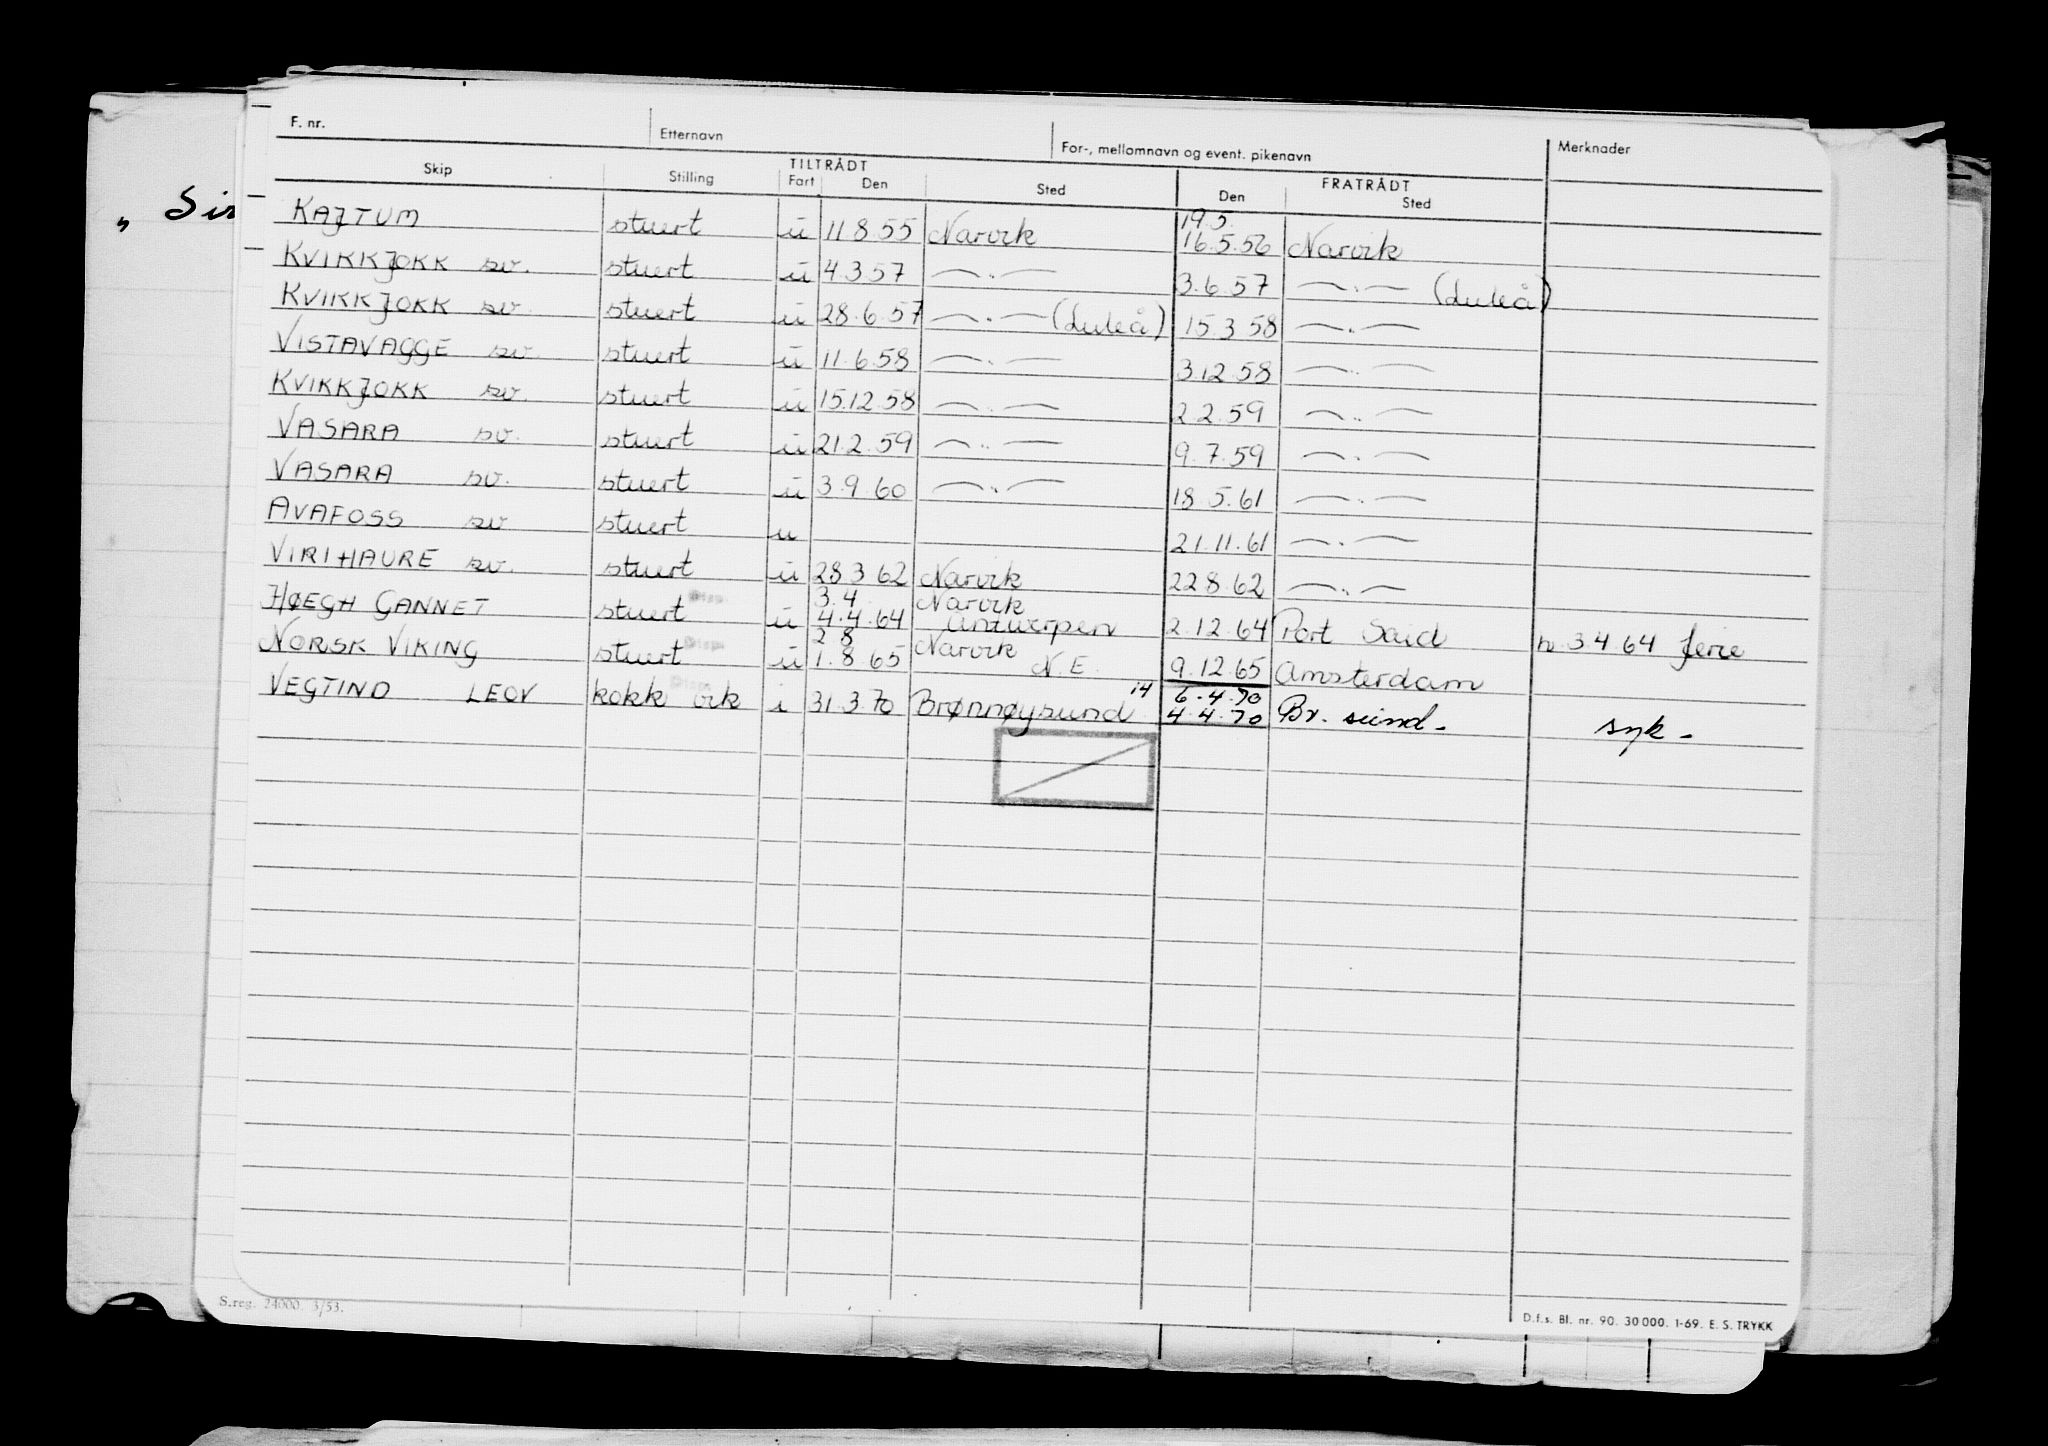 F. nr. Etternavn For-, mellomnavn og event. pikenavn Merknader
TILTRÅDT FRATRÅDT
Skip Stilling Fart Den Sted Den Sted
„ Sir
19.5.
KAJTUM stuert u 11.8.55 Narvik 16.5.56 Narvik
KVIKKJOKK sv. stuert u 4.3.57 —„— 3.6.57 —„— (Luleå)
KVIKKJOKK sv. stuert u 28.6.57 —„— (Luleå) 15.3.58 —„—
VISTAVAGGE sv. stuert u 11.6.58 —„— 3.12.58 —„—
KVIKKJOKK sv. stuert u 15.12.58 —„— 2.2.59 —„—
VASARA sv. stuert u 21.2.59 —„— 9.7.59 —„—
VASARA sv. stuert u 3.9.60 —„— 18.5.61 —„—
AVAFOSS sv stuert u 21.11.61 —„—
VIRIHAURE sv. stuert u 28.3.62 Narvik 22.8.62 —„—
Disp 3.4 Narvik
HØEGH GANNET stuert u 4.4.64 Antwerpen 2.12.64 Port Said n. 3.4.64 ferie
Disp 2.8 Narvik
NORSK VIKING stuert u 1.8.65 N.E. 9.12.65 Amsterdam
Disp 14 6.4.70
VEGTIND LEOV kokk vik i 31.3.70 Brønnøysund 4.4.70 Br. sund. syk.
S.reg. 24000. 3/53.
D.f.s. Bl. nr. 90. 30000. 1-69. E. S. TRYKK